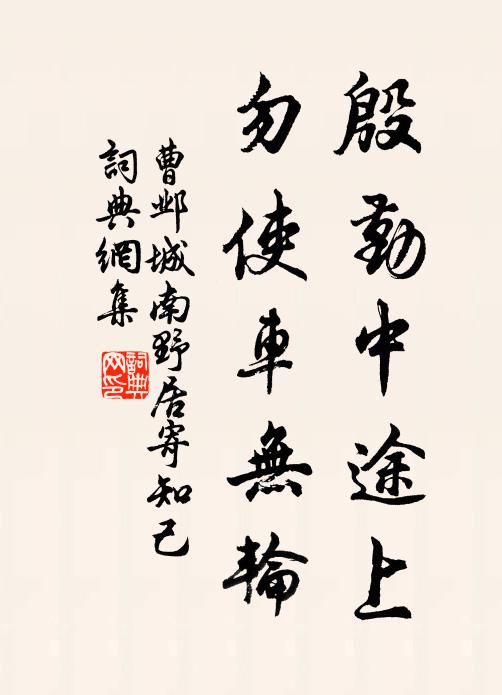 殷勤中途上
勿使車無輪
曹邺城南野居寄知己
詞典網集
詞典
网印